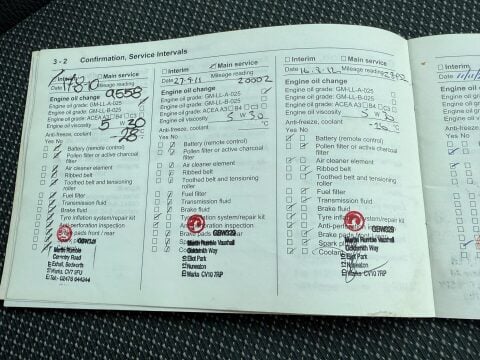 3 - 2 Confirmation, Service Intervals
Interim Main service
Date 17/8/10 Mileage reading
9658
Engine oil change
Engine oil grade: GM-LL-A-025
Engine oil grade: GM-LL-B-025
Engine oil grade: ACEA A3 B4 C3
Engine oil viscosity 5 W 30
Anti-freeze, coolant -25 °C
Yes No
Battery (remote control)
Pollen filter or active charcoal
filter
Air cleaner element
Ribbed belt
Toothed belt and tensioning
roller
Fuel filter
Transmission fluid
Brake fluid
Tyre inflation system/repair kit
Anti-perforation inspection
Brake pads front / rear
GBW341
Martin Rumble
Coventry Road
Exhall, Bedworth
Warks CV7 9FU
Tel: 02476 644244
Interim Main service
Date 27.4.11 Mileage reading
20002
Engine oil change
Engine oil grade: GM-LL-A-025
Engine oil grade: GM-LL-B-025
Engine oil grade: ACEA A3 B4 C3
Engine oil viscosity 5 W 30
Anti-freeze, coolant °C
Yes No
Battery (remote control)
Pollen filter or active charcoal
filter
Air cleaner element
Ribbed belt
Toothed belt and tensioning
roller
Fuel filter
Transmission fluid
Brake fluid
Tyre inflation system/repair kit
GBW329
Martin Rumble Vauxhall
Goldsmith Way
Eliot Park
Nuneaton
Warks CV10 7RP
Interim Main service
Date 16.3.12 Mileage reading
Engine oil change
Engine oil grade: GM-LL-A-025
Engine oil grade: GM-LL-B-025
Engine oil grade: ACEA A3 B4 C3
Engine oil viscosity 5 W 30
Anti-freeze, coolant °C
Yes No
Battery (remote control)
Pollen filter or active charcoal
filter
Air cleaner element
Ribbed belt
Toothed belt and tensioning
roller
Fuel filter
Transmission fluid
Brake fluid
Tyre inflation system/repair kit
Brake pads front / rear
Spark
Coolant
GBW329
Martin Rumble Vauxhall
Goldsmith Way
Eliot Park
Nuneaton
Warks CV10 7RP
Interim
Date
Engine oil
Engine oil
Engine oil
Engine oil
Engine oil
Anti-freeze
Yes No